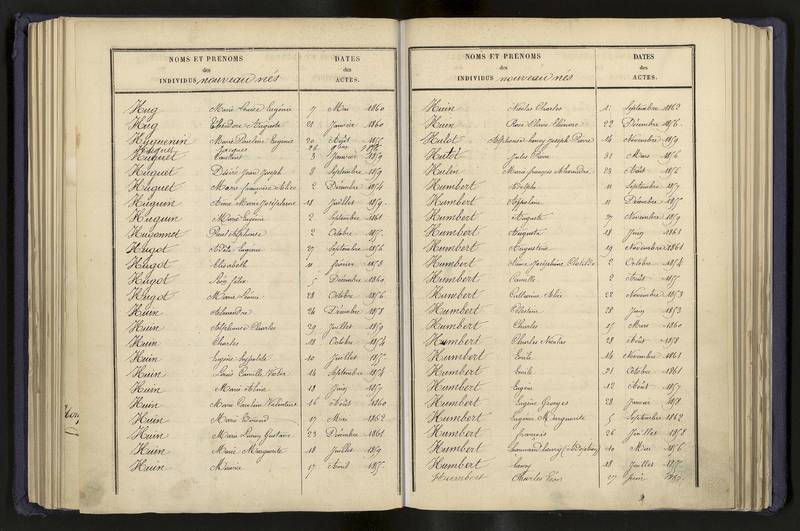 NOMS ET PRÉNOMS
des
INDIVIDUS nouveau nés
DATES
des
ACTES.
Hug Marie Louise Eugénie 7 Mai 1860
Hug Théodore Auguste 21 Janvier 1860
Huguenin Marie Pauline Eugénie 20 Août 1857
Huguet
Huguet 3 Janvier 1859
Huguet Désiré Jean Joseph 8 Septembre 1859
Huguet Marie Françoise Alice 2 Décembre 1854
Huguin Anne Marie Joséphine 18 Juillet 1859
Huguin Marie Eugénie 2 Septembre 1861
Hugonnet Paul Alphonse 2 Octobre 1857
Hugot Eugénie 27 Septembre 1856
Hugot Elisabeth 11 Février 1858
Hugot 5 Décembre 1860
Hugot Marie 28 Octobre 1856
Huin Alexandre 24 Décembre 1858
Huin Alphonse Charles 29 Juillet 1859
Huin Charles 18 Octobre 1854
Huin Eugène Hippolite 10 Juillet 1857
Huin Louis Camille Victor 14 Septembre 1854
Huin Marie 18 Juin 1857
Huin Marie Pauline Valentine 16 Août 1860
Huin Marie 17 Mai 1862
Huin Marie Gustave 23 Décembre 1861
Huin Marie Marguerite 18 Juillet 1859
Huin Maurice 17 Avril 1857
NOMS ET PRÉNOMS
des
INDIVIDUS nouveau nés
DATES
des
ACTES.
Huin Nicolas Charles 1 Septembre 1862
Huin Rose Marie 22 Décembre 1856
Hulot Alphonse Henry Joseph Pierre 14 Novembre 1859
Hulot Jules Pierre 31 Mars 1856
Hulin Marie François Alexandre 23 Août 1856
Humbert Adolphe 11 Septembre 1857
Humbert 11 Décembre 1857
Humbert Auguste 27 Novembre 1859
Humbert Auguste 18 Juin 1861
Humbert Augustine 19 Novembre 1861
Humbert Joséphine Clotilde 2 Octobre 1854
Humbert Camille 2 Août 1857
Humbert Catherine Alice 22 Novembre 1853
Humbert Célestin 28 Juin 1853
Humbert Charles 17 Mars 1860
Humbert Charles Nicolas 28 Août 1858
Humbert Emile 14 Novembre 1861
Humbert Emile 31 Octobre 1861
Humbert Eugène 12 Août 1857
Humbert Eugène Georges 28 Janvier 1858
Humbert Eugénie Marguerite 5 Septembre 1862
Humbert François 26 Juillet 1858
Humbert 10 Mai 1856
Humbert Henry 18 Juillet 1857
Humbert Charles 27 Juin